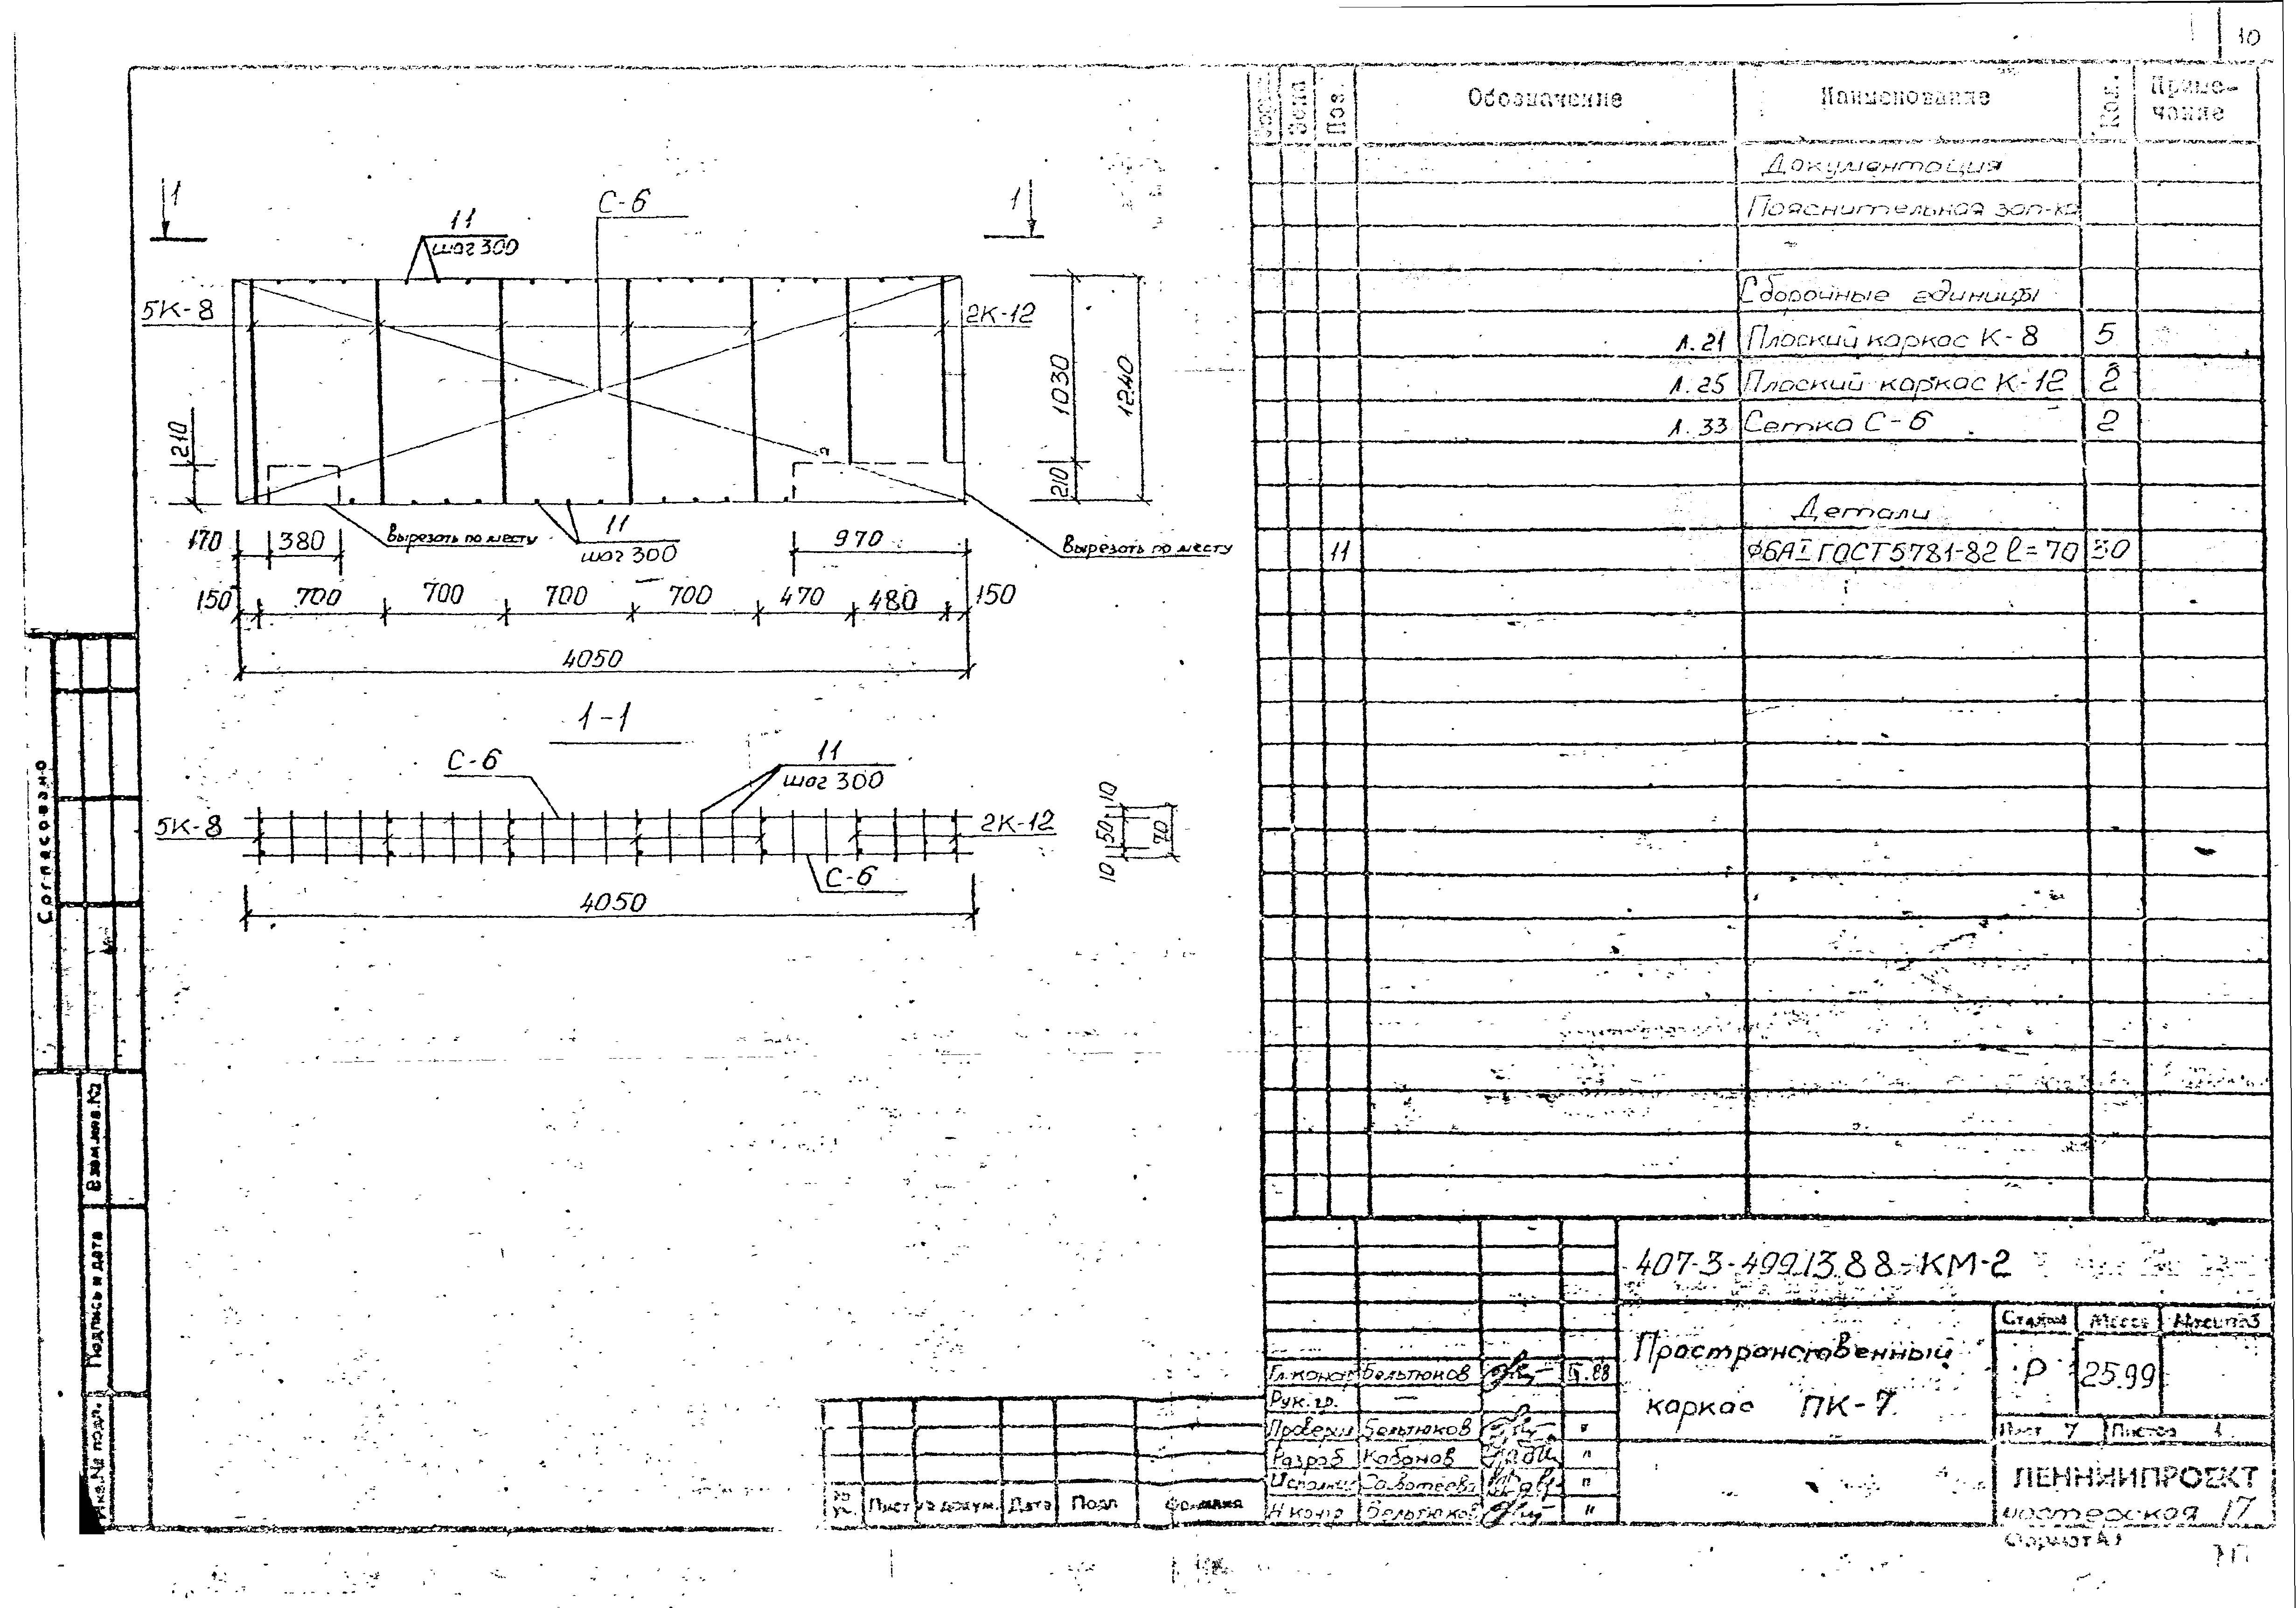 10
Обозначение
Наименование
Кол.
Приме-
чание
Зона
Поз.
Документация
Пояснительная зап-ка
Сборочные единицы
л.21 Плоский каркас К-8 5
л.25 Плоский каркас К-12 2
л.33 Сетка С-6 2
Детали
11 ф6АI ГОСТ 5781-82 l=70 30
1
1
11
шаг 300
С-6
5К-8
2К-12
210
1030
1240
210
170
380
Вырезать по месту
11
шаг 300
970
Вырезать по месту
150
700
700
700
700
470
480
150
4050
1-1
С-6
11
шаг 300
5К-8
2К-12
С-6
4050
10
50
10
70
Согласовано
Взам.инв.№
Подпись и дата
Инв.№ подл.
407-3-499.13.88-КМ-2
Пространственный
каркас ПК-7
Стадия Масса Масштаб
Р 25.99
Лист 7 Листов 1
ЛЕННИИПРОЕКТ
мастерская 17
Формат А3
Гл.констр Бельтюков
Рук.гр. —
Проверил Бельтюков "
Разраб Кабанов "
Исполнил Саватеева "
Н.контр Бельтюков "
Лист № докум. Дата Подп Фамилия